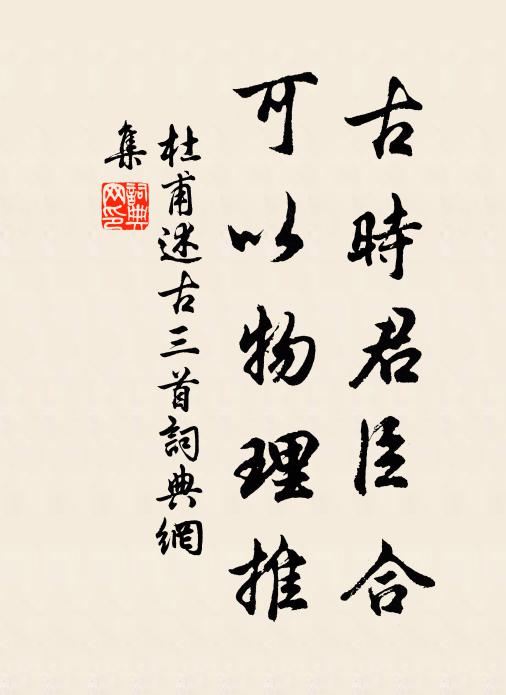 古時君臣合
可以物理推
杜甫述古三首詞典網
集
詞典網印